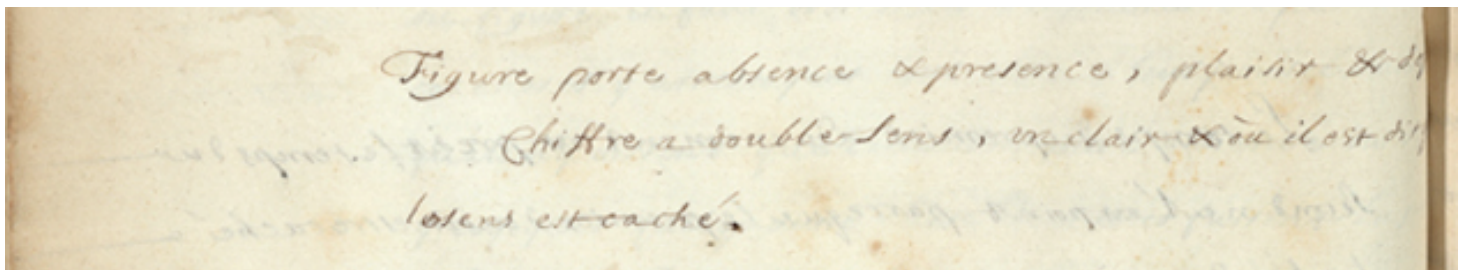 Figure porte absence & presence, plaisir & de
Chiffre a double-sens, un clair & où il est dit
lesens est caché.